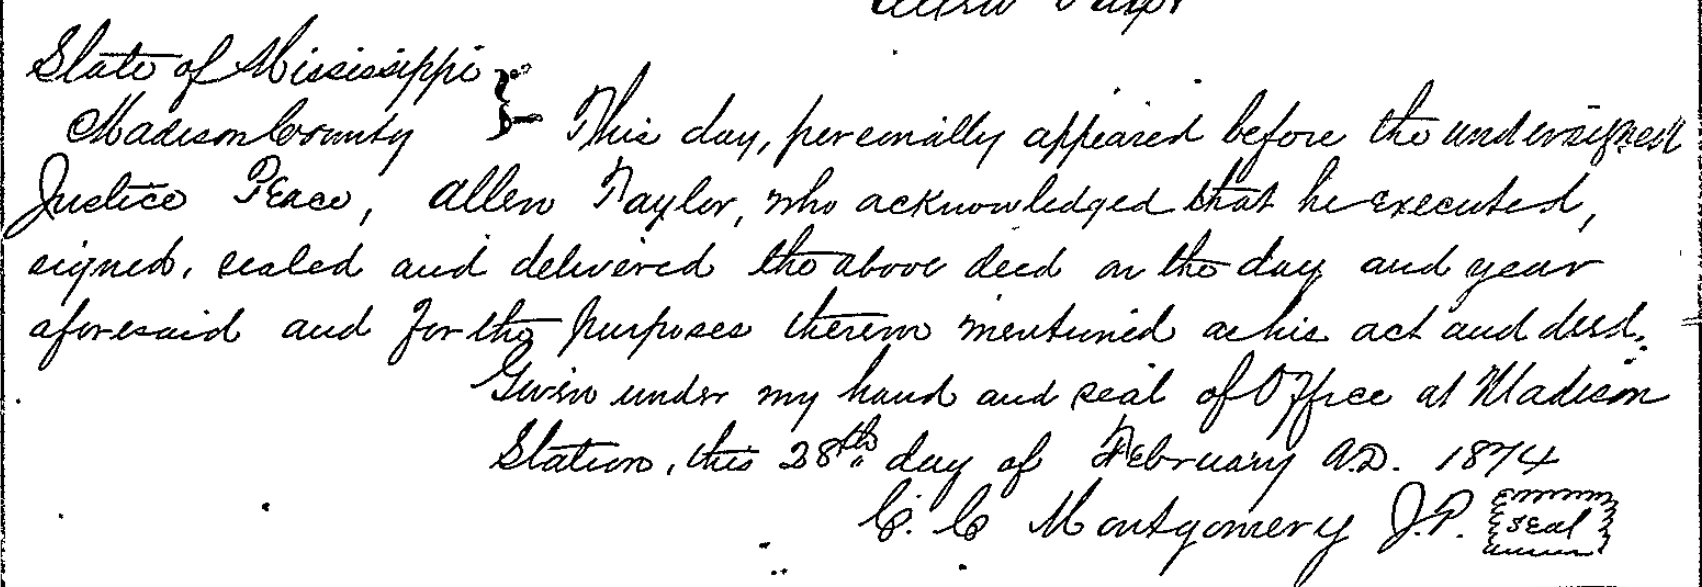 State of Mississippi
Madison County } This day, personally appeared before the undersigned
Justice Peace, Allen Taylor, who acknowledged that he executed,
signed, sealed and delivered the above deed on the day and year
aforesaid and for the purposes therein mentioned as his act and deed.
Given under my hand and seal of Office at Madison
Station, this 28th day of February A.D. 1874
C. C Montgomery J.P. Seal